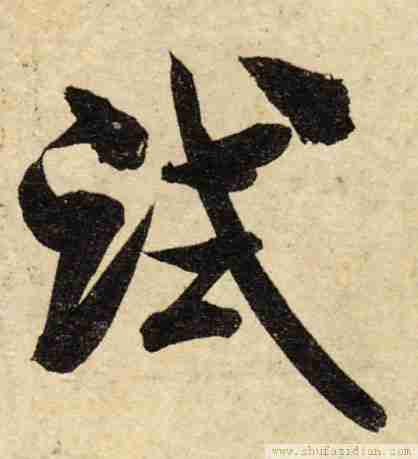 試
www.shufazidian.com